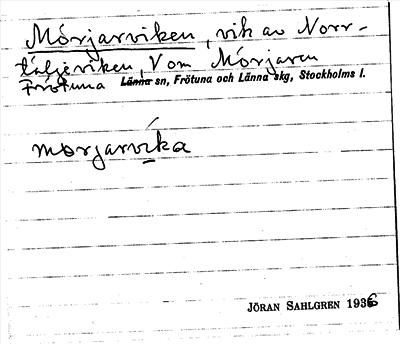 Mörjarviken, vik av Norr-
täljeviken, V om Mörjaren
Frötuna Länna sn, Frötuna och Länna skg, Stockholms l.
mørjarvíka
JÖRAN SAHLGREN 1936